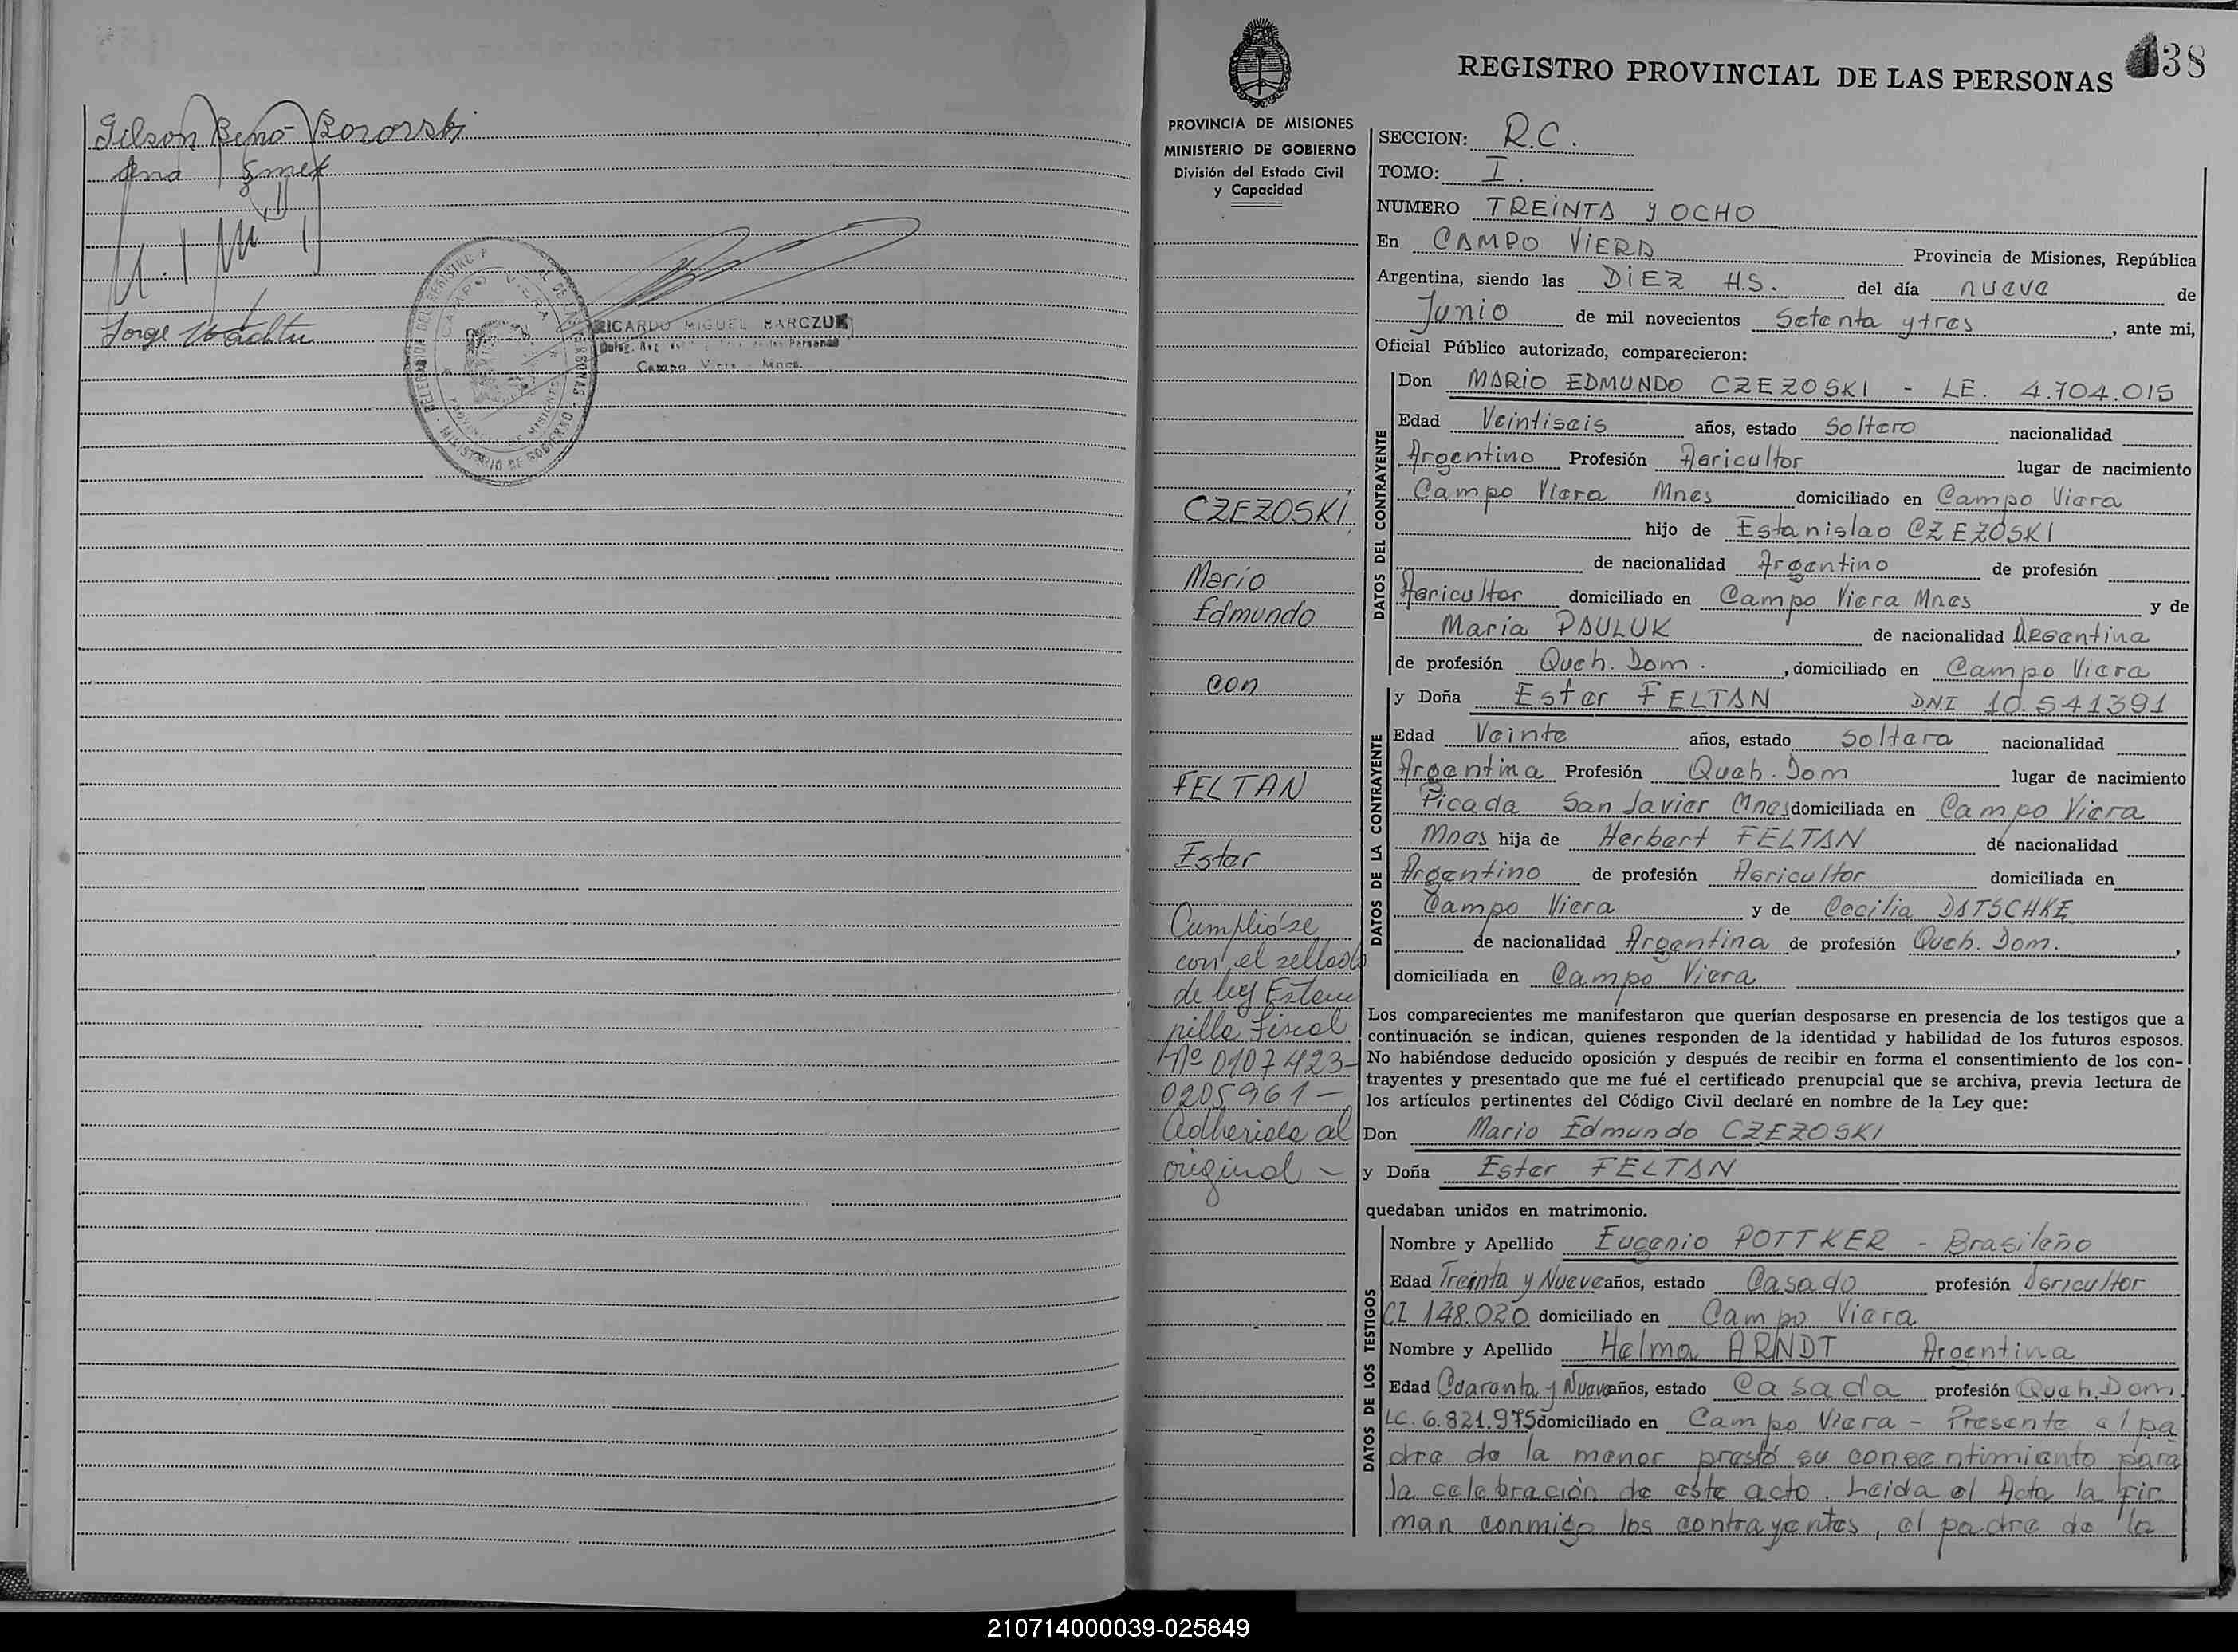 Gilson Benó Bozorski
Ana Gmef
Jorge Wachtu
CAMPO VIERA
PROVINCIA DE MISIONES
MINISTERIO DE GOBIERNO
RICARDO MIGUEL HARCZUK
Campo Viera - Mnes.
138
REGISTRO PROVINCIAL DE LAS PERSONAS
PROVINCIA DE MISIONES
MINISTERIO DE GOBIERNO
División del Estado Civil
y Capacidad
CZEZOSKI,
Mario
Edmundo
con
FELTAN
Ester
Cumplióse
con el sellado
de ley Estam
pilla Fiscal
Nº 0107423-
0205961-
Adherida al
original -
SECCION: R.C.
TOMO: I.
NUMERO TREINTA y OCHO
En CAMPO VIERA Provincia de Misiones, República
Argentina, siendo las DIEZ HS. del día nueve de
Junio de mil novecientos Setenta y tres, ante mi,
Oficial Público autorizado, comparecieron:
DATOS DEL CONTRAYENTE
Don MARIO EDMUNDO CZEZOSKI - LE. 4.704.015
Edad Veintiseis años, estado Soltero nacionalidad
Argentino Profesión Agricultor lugar de nacimiento
Campo Viera Mnes domiciliado en Campo Viera
hijo de Estanislao CZEZOSKI
de nacionalidad Argentino de profesión
Agricultor domiciliado en Campo Viera Mnes y de
Maria PAULUK de nacionalidad Argentina
de profesión Queh. Dom. , domiciliado en Campo Viera
DATOS DE LA CONTRAYENTE
y Doña Ester FELTAN DNI 10.541391
Edad Veinte años, estado Soltera nacionalidad
Argentina Profesión Queh. Dom lugar de nacimiento
Picada San Javier Mnes domiciliada en Campo Viera
Mnes hija de Herbert FELTAN de nacionalidad
Argentino de profesión Agricultor domiciliada en
Campo Viera y de Cecilia DATSCHKE
de nacionalidad Argentina de profesión Queh. Dom. ,
domiciliada en Campo Viera
Los comparecientes me manifestaron que querían desposarse en presencia de los testigos que a
continuación se indican, quienes responden de la identidad y habilidad de los futuros esposos.
No habiéndose deducido oposición y después de recibir en forma el consentimiento de los con-
trayentes y presentado que me fué el certificado prenupcial que se archiva, previa lectura de
los artículos pertinentes del Código Civil declaré en nombre de la Ley que:
Don Mario Edmundo CZEZOSKI
y Doña Ester FELTAN
quedaban unidos en matrimonio.
DATOS DE LOS TESTIGOS
Nombre y Apellido Eugenio POTTKER - Brasileño
Edad Treinta y Nueve años, estado Casado profesión Agricultor
CI 148.020 domiciliado en Campo Viera
Nombre y Apellido Helma ARNDT Argentina
Edad Cuarenta y Nueve años, estado Casada profesión Queh. Dom.
LC. 6.821.975 domiciliado en Campo Viera - Presente el pa
dre de la menor prestó su consentimiento para
la celebración de este acto. Leida el Acta la fir
man conmigo los contrayentes, el padre de la
210714000039-025849